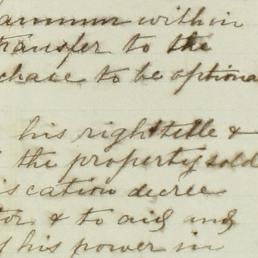 annum within
transfer to the
chace to be optiona
his right title &
the property sold
iscation decree
tor & to aid and
his power in